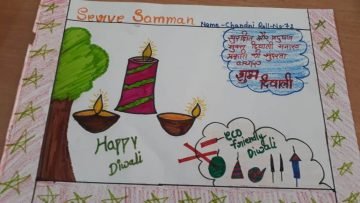 Sewve Samman
Name - Chandni Roll-No-73
सुरक्षित और प्रदूषण
मुक्त दिवाली मनाए
शुभ
दिवाली
Happy
Diwali
eco
friendly
Diwali